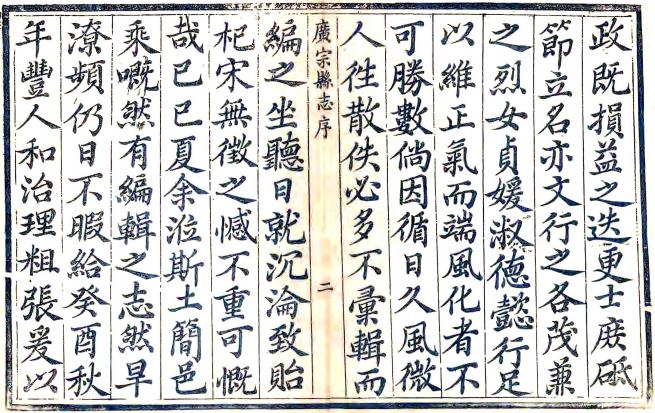 政既損益之迭更士庶砥
節立名亦文行之各茂兼
之烈女貞媛淑德懿行足
以維正氣而端風化者不
可勝數倘因循日久風微
人徃散佚必多不彙輯而
廣宗縣志序
二
編之坐聽日就沉淪致貽
杞宋無徵之憾不重可慨
哉已巳夏余涖斯土簡邑
乘嘅然有編輯之志然旱
潦頻仍日不暇給癸酉秋
年豐人和治理粗張爰以